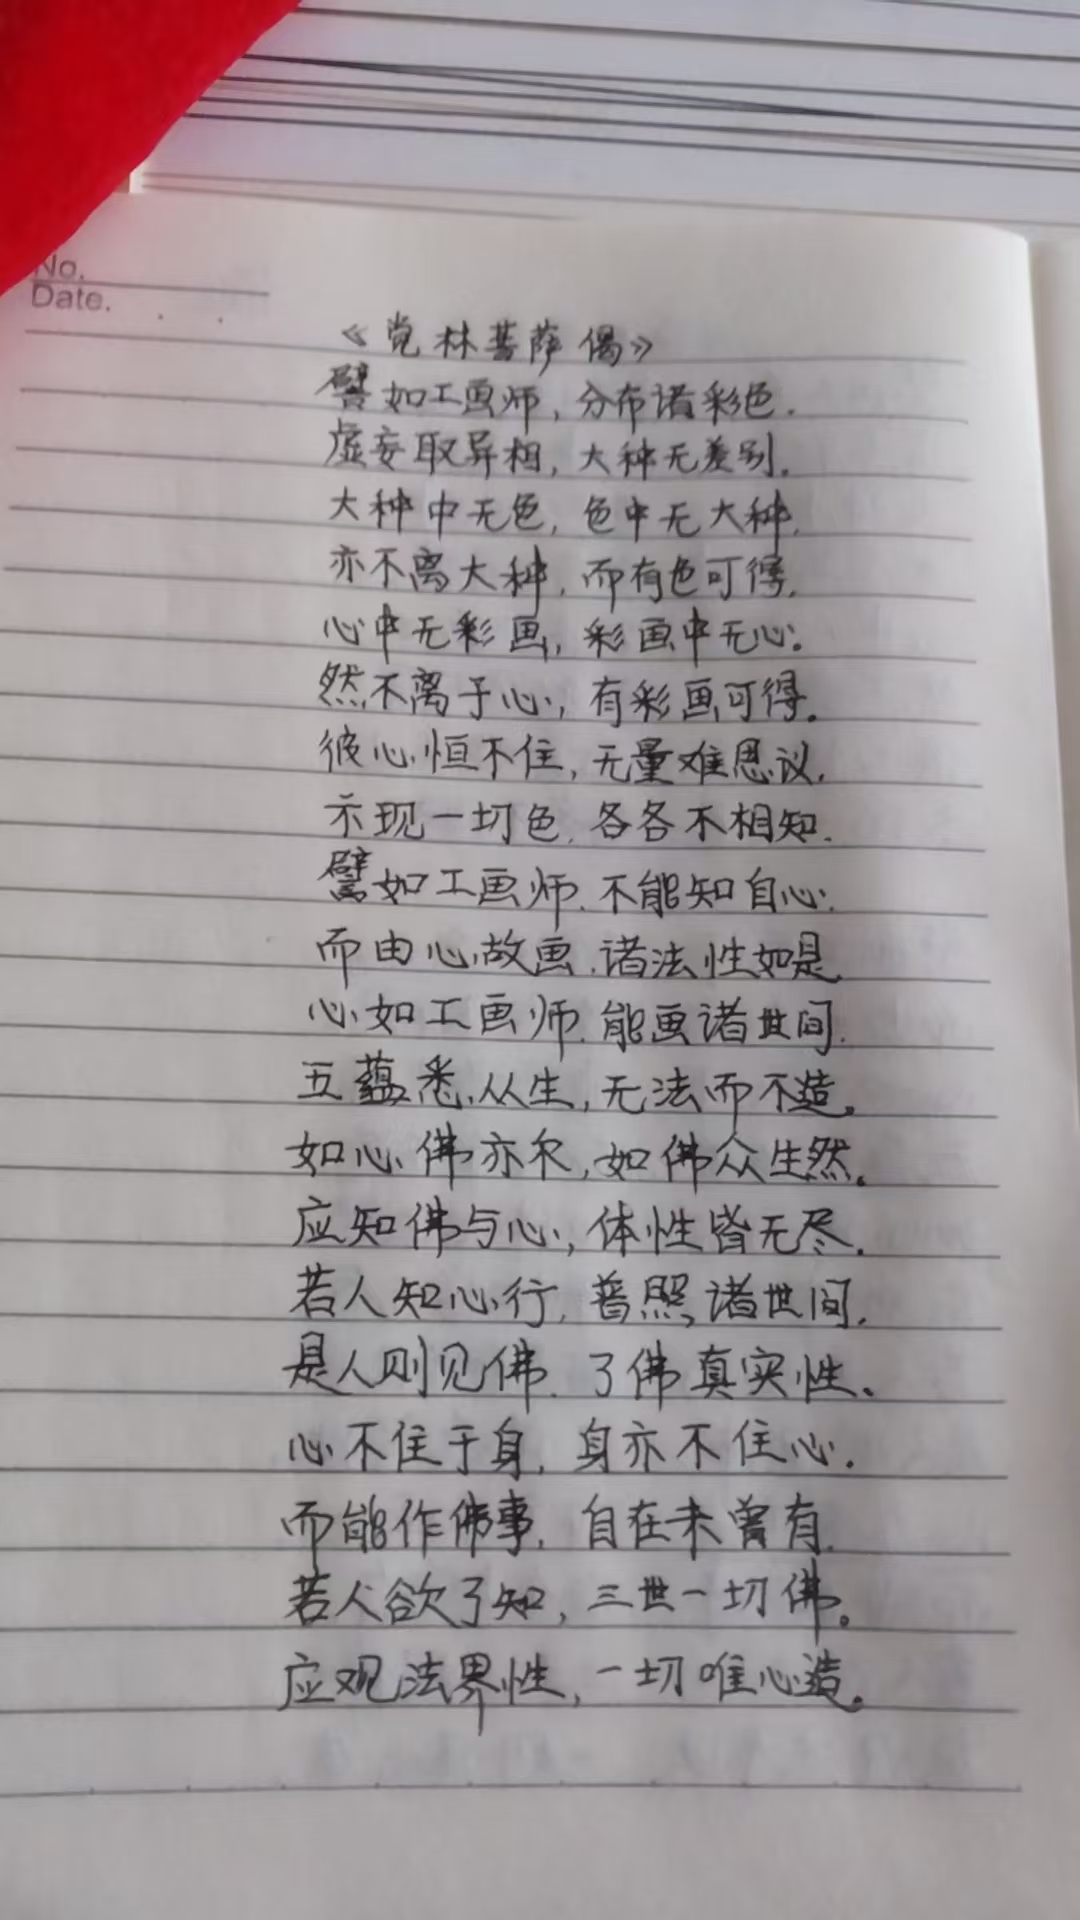 No.
Date.
《觉林菩萨偈》
譬如工画师，分布诸彩色.
虚妄取异相，大种无差别.
大种中无色，色中无大种.
亦不离大种，而有色可得.
心中无彩画，彩画中无心.
然不离于心，有彩画可得。
彼心恒不住，无量难思议.
示现一切色.各各不相知.
譬如工画师.不能知自心.
而由心故画.诸法性如是.
心如工画师.能画诸世间.
五蕴悉从生，无法而不造。
如心佛亦尔，如佛众生然。
应知佛与心，体性皆无尽.
若人知心行，普照诸世间.
是人则见佛.了佛真实性。
心不住于身，身亦不住心.
而能作佛事，自在未曾有.
若人欲了知，三世一切佛。
应观法界性，一切唯心造。